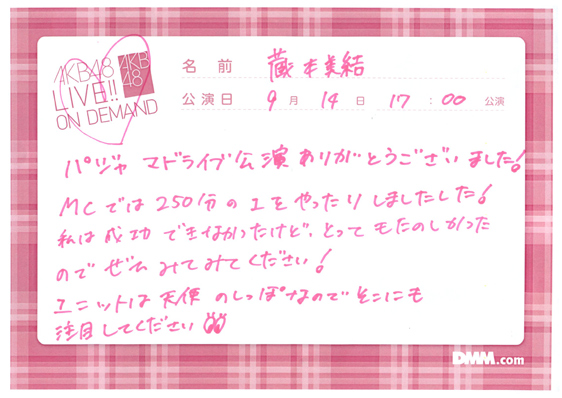 AKB48
LIVE!!
ON DEMAND
AKB
48
名前 蔵本美結
公演日 9月14日 17:00 公演
パジャマドライブ公演ありがとうございました!
MCでは250分の1をやったりしましたした!
私は成功できなかったけど、とってもたのしかった
のでぜひみてみてください!
ユニットは天使のしっぽなのでそこにも
注目してください
DMM.com